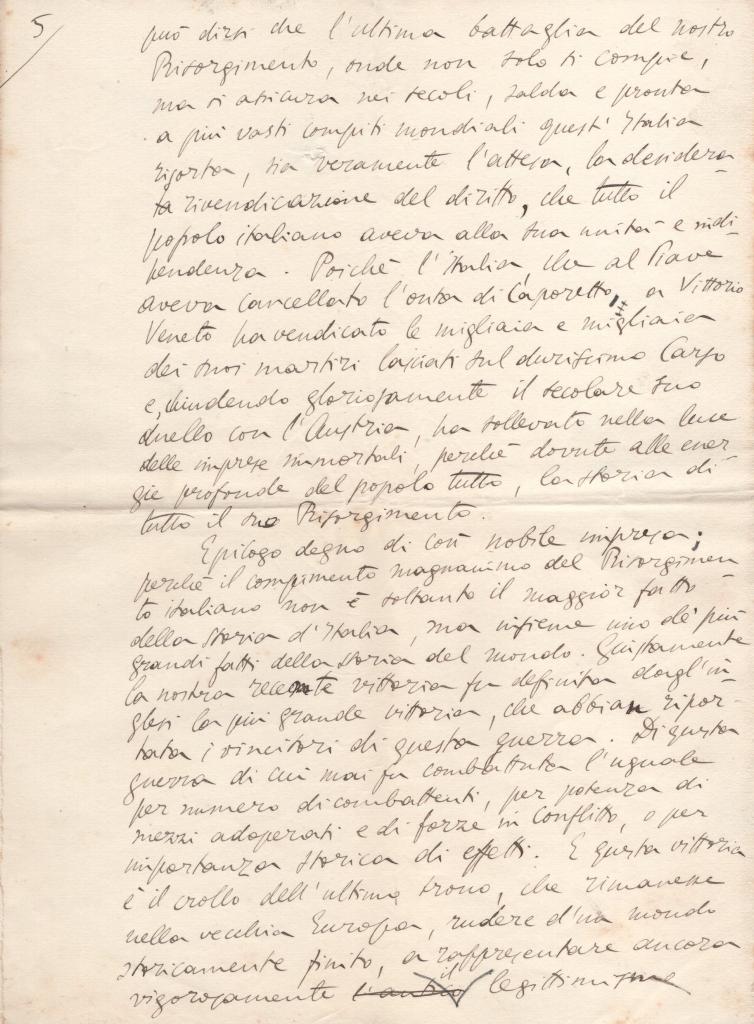 5
può dirsi che l'ultima battaglia del nostro
Risorgimento, onde non solo si compie,
ma si assicura nei secoli, salda e pronta
a più vasti compiti mondiali quest'Italia
risorta, sia veramente l'attesa, la desidera-
ta rivendicazione del diritto, che tutto il
popolo italiano aveva alla sua unità e indi-
pendenza. Poichè l'Italia, che al Piave
aveva cancellato l'onta di Caporetto, a Vittorio
Veneto ha vendicato le migliaia e migliaia
dei suoi martiri lasciati sul durissimo Carso
e, chiudendo gloriosamente il secolare suo
duello con l'Austria, ha sollevato nella luce
delle imprese immortali, perchè dovute alle ener
gie profonde del popolo tutto, la storia di
tutto il suo Risorgimento.
Epilogo degno di così nobile impresa;
perchè il compimento magnanimo del Risorgimen
to italiano non è soltanto il maggior fatto
della storia d'Italia, ma insieme uno de' più
grandi fatti della storia del mondo. Giustamente
la nostra recente vittoria fu definita dagl'in-
glesi la più grande vittoria, che abbian ripor-
tata i vincitori di questa guerra. Di questa
guerra di cui mai fu combattuta l'uguale
per numero di combattenti, per potenza di
mezzi adoperati e di forze in conflitto, o per
importanza storica di effetti. E questa vittoria
è il crollo dell'ultimo trono, che rimanesse
nella vecchia Europa, rudere d'un mondo
storicamente finito, a rappresentare ancora
vigorosamente l'antico il legittimismo